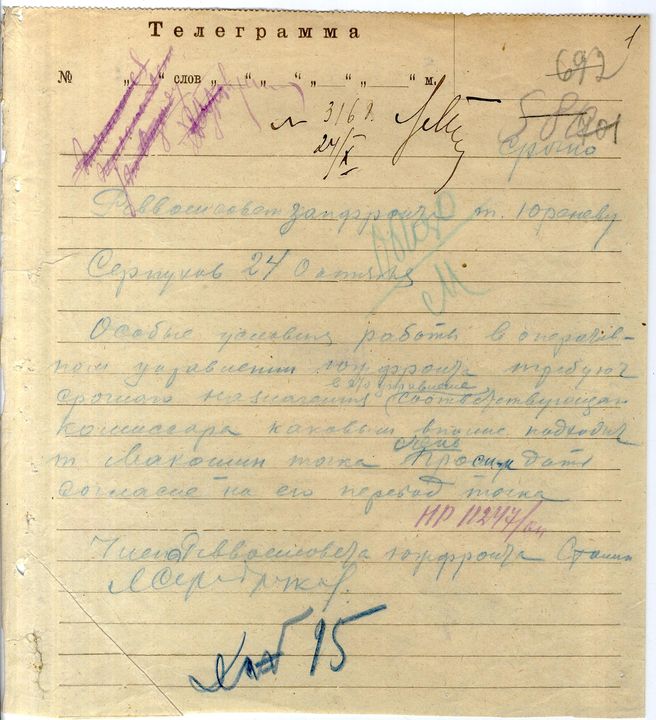 Телеграмма
1
692
№ „ “ слов „ “ „ “ „ “ „ “ м.
№ 316
24/X
701
срочно
Реввоенсовет запфронта т. Юреневу
Серпухов 24 Октября
Особые условия работы в оператив-
ном управлении южфронта требуют
в это управление
срочного назначения соответствующего
комиссара каковым вполне подходит
т. Макошин точка Прошу дать
согласие на его перевод точка
НР 11247/оп
Член Реввоенсовета южфронта Сталин
Л Серебряков
№ 15